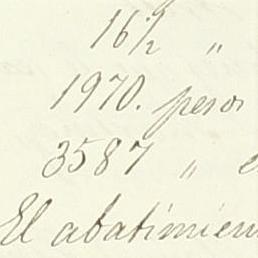 16½ "
1970. pesos
3587 " e
El abatimien